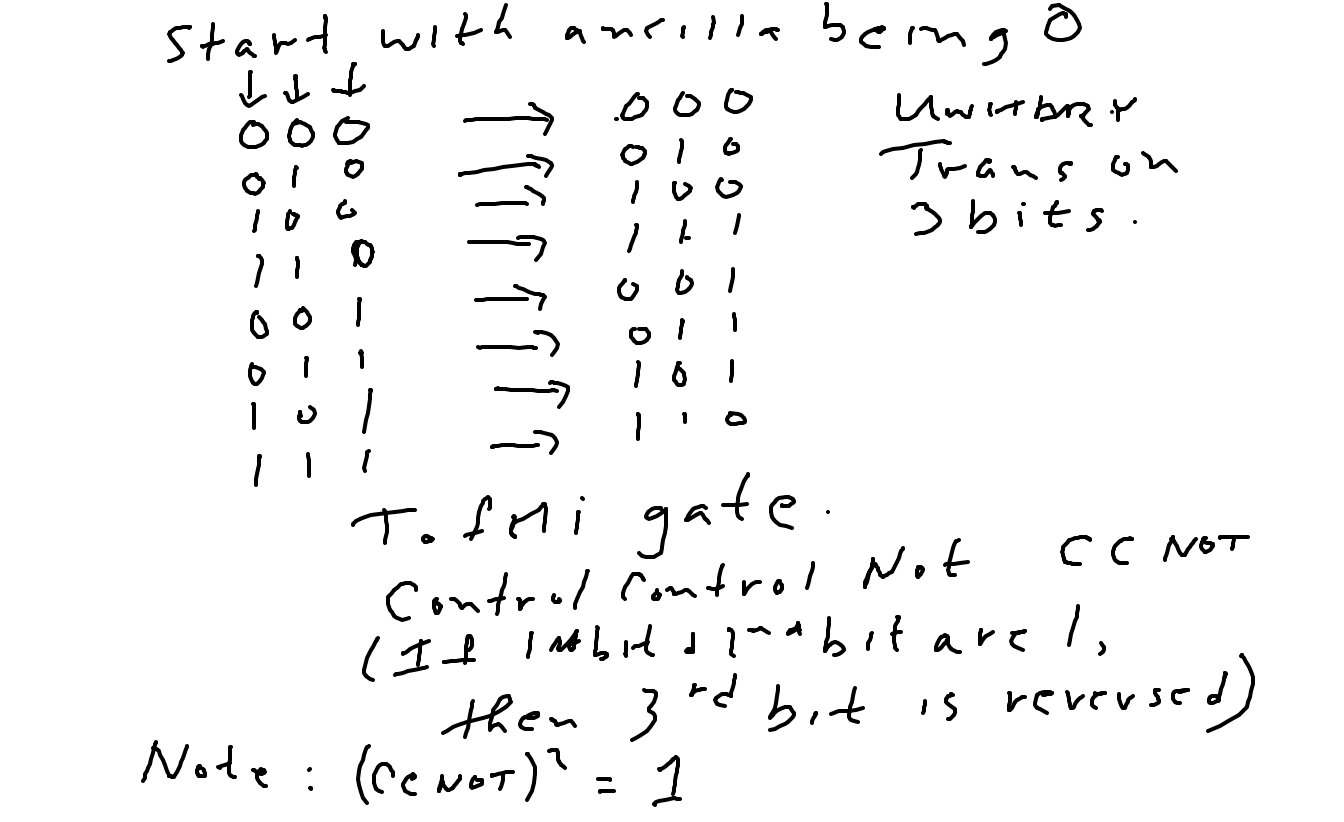 Start with ancilla being 0
↓ ↓ ↓
0 0 0 → 0 0 0 Unitary
0 1 0 → 0 1 0 Trans on
1 0 0 → 1 0 0 3 bits.
1 1 0 → 1 1 1
0 0 1 → 0 0 1
0 1 1 → 0 1 1
1 0 1 → 1 0 1
1 1 1 → 1 1 0
Toffoli gate.
Control Control Not CCNOT
(If 1st bit & 2nd bit are 1,
then 3rd bit is reversed)
Note: (CCNOT)² = 1